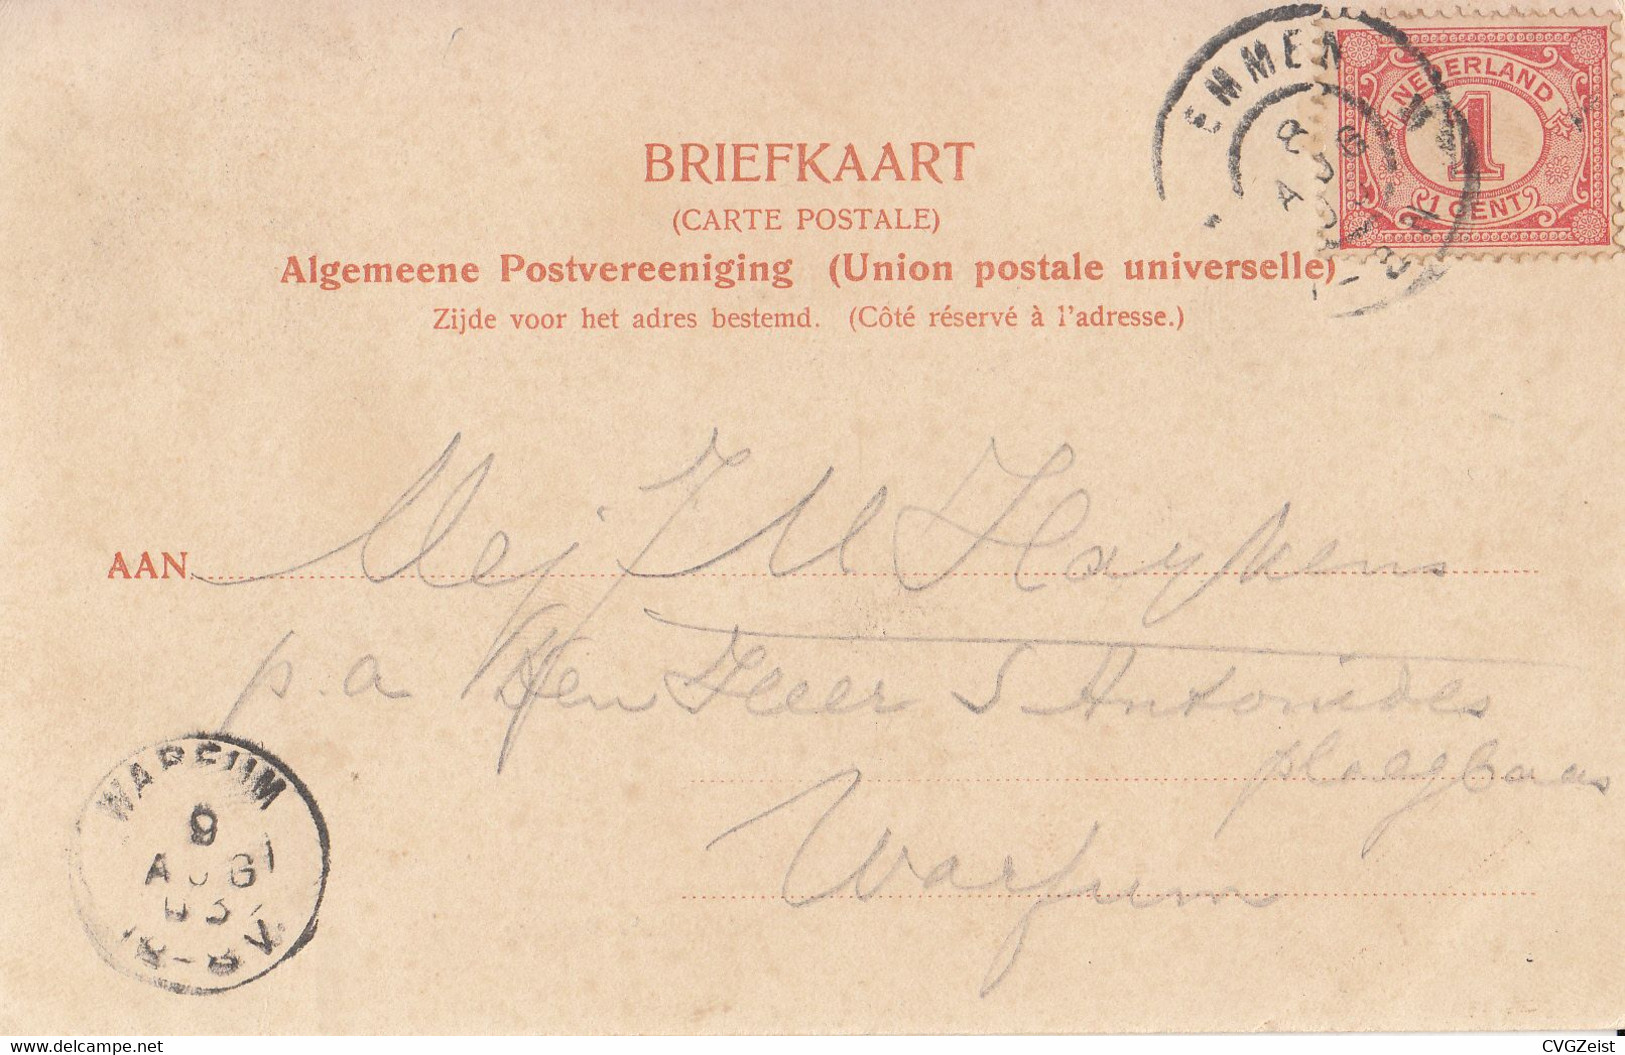 EMMEN
8 AUG
NEDERLAND
1
1 CENT
BRIEFKAART
(CARTE POSTALE)
Algemeene Postvereeniging (Union postale universelle)
Zijde voor het adres bestemd. (Côté réservé à l'adresse.)
AAN Mej J M Haykens
p.a Den Heer S Antonides
ploegbaas
Warfum
WARFUM
9
AUG
03
6-8 V.
delcampe.net
CVGZeist